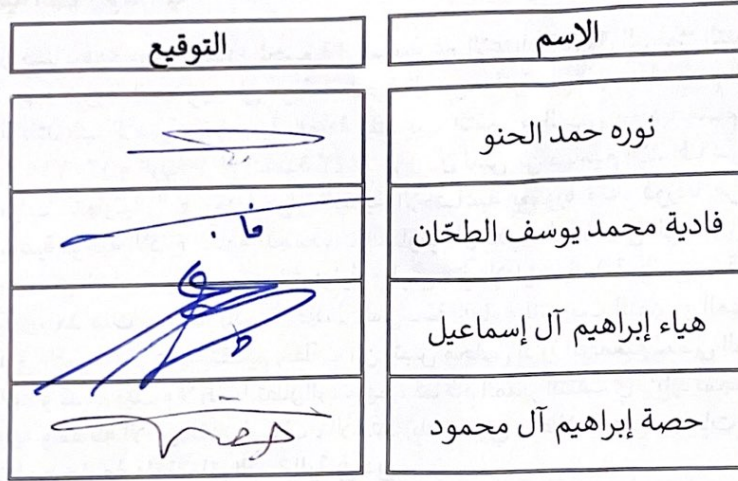 الاسم التوقيع
نوره حمد الحنو
فادية محمد يوسف الطحّان فا.
هياء إبراهيم آل إسماعيل
حصة إبراهيم آل محمود حصه